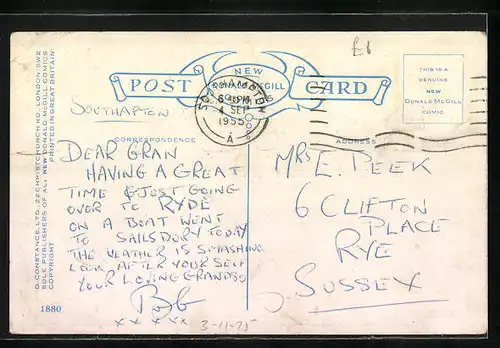 £6
NEW
DONALD McGILL
COMICS
POST CARD
THIS IS A
GENUINE
NEW
DONALD McGILL
COMIC
SOUTHAMPTON
6 PM
4 SEP
1955
A
SOUTHAPTON
CORRESPONDENCE
ADDRESS
DEAR GRAN
HAVING A GREAT
TIME & JUST GOING
OVER TO RYDE
ON A BOAT WENT
TO SAILSBURY TODAY
THE WEATHER IS SMASHING
LOOK AFTER YOUR SELF
YOUR LOVING GRANDSO
Bob
x x x x x
3-11-75
MRS E. PEEK
6 CLIFTON
PLACE
RYE
SUSSEX
D. CONSTANCE, LTD., 22 CHRISTCHURCH RD. LONDON. SW2
SOLE PUBLISHERS OF ALL NEW DONALD McGILL COMICS
COPYRIGHT PRINTED IN GREAT BRITAIN
1880